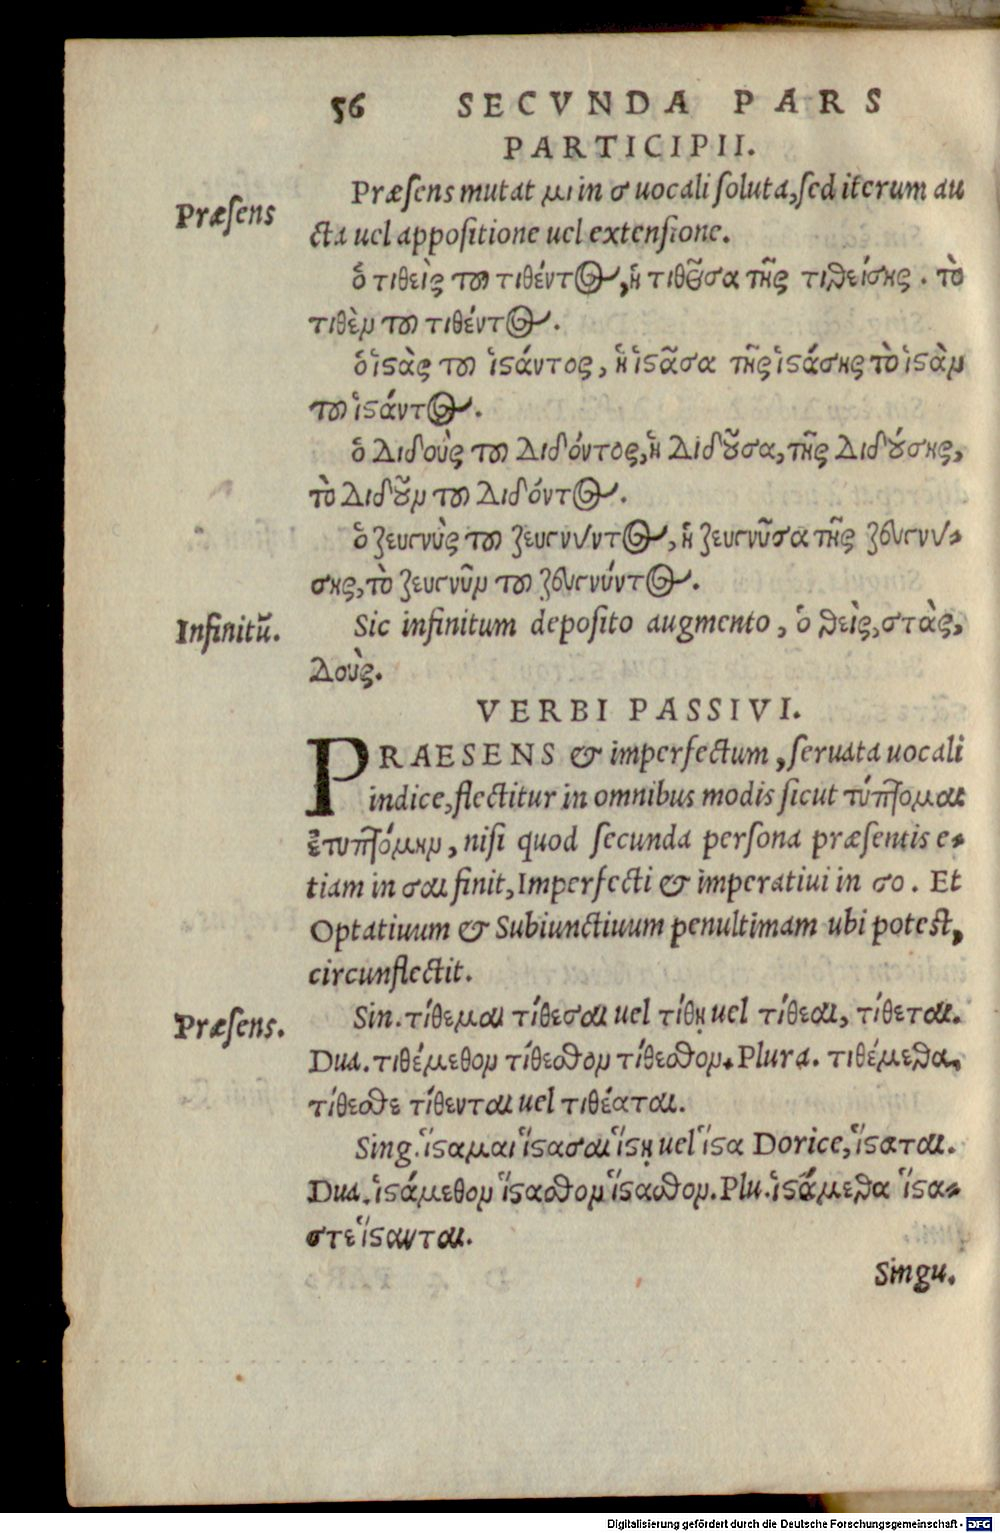 56 SECVNDA PARS
PARTICIPII.
Præsens
Præsens mutat μι in σ uocali soluta, sed iterum au
cta uel appositione uel extensione.
ὁ τιθεὶς τοῦ τιθέντος, ἡ τιθεῖσα τῆς τιθείσης . τὸ
τιθὲν τοῦ τιθέντος.
ὁ ἱϛὰς τοῦ ἱϛάντος, ἡ ἱϛᾶσα τῆς ἱϛάσης τὸ ἱϛὰν
τοῦ ἱϛάντος.
ὁ διδοὺς τοῦ διδόντος, ἡ διδοῦσα, τῆς διδούσης,
τὸ διδοῦν τοῦ διδόντος.
ὁ ζευγνὺς τοῦ ζευγνύντος, ἡ ζευγνῦσα τῆς ζευγνύ-
σης, τὸ ζευγνῦν τοῦ ζευγνύντος.
Infinitũ.
Sic infinitum deposito augmento, ὁ θεὶς, στὰς,
δοὺς.
VERBI PASSIVI.
PRAESENS & imperfectum, seruata uocali
indice, flectitur in omnibus modis sicut τύπτομαι
ἐτυπτόμην, nisi quod secunda persona præsentis e-
tiam in σαι finit, Imperfecti & imperatiui in σο. Et
Optatiuum & Subiunctiuum penultimam ubi potest,
circunflectit.
Præsens.
Sin. τίθεμαι τίθεσαι uel τίθῃ uel τίθεαι, τίθεται.
Dua. τιθέμεθον τίθεσθον τίθεσθον. Plura. τιθέμεθα,
τίθεσθε τίθενται uel τιθέαται.
Sing. ἵϛαμαι ἵϛασαι ἵϛῃ uel ἵϛα Dorice, ἵϛαται.
Dua. ἱϛάμεθον ἵϛασθον ἵϛασθον. Plu. ἱϛάμεθα ἵϛα-
στε ἵϛανται.
Singu.
Digitalisierung gefördert durch die Deutsche Forschungsgemeinschaft - DFG